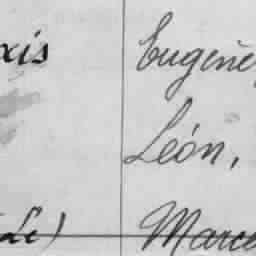 xis Eugène,
Léon,
(Le) Marce